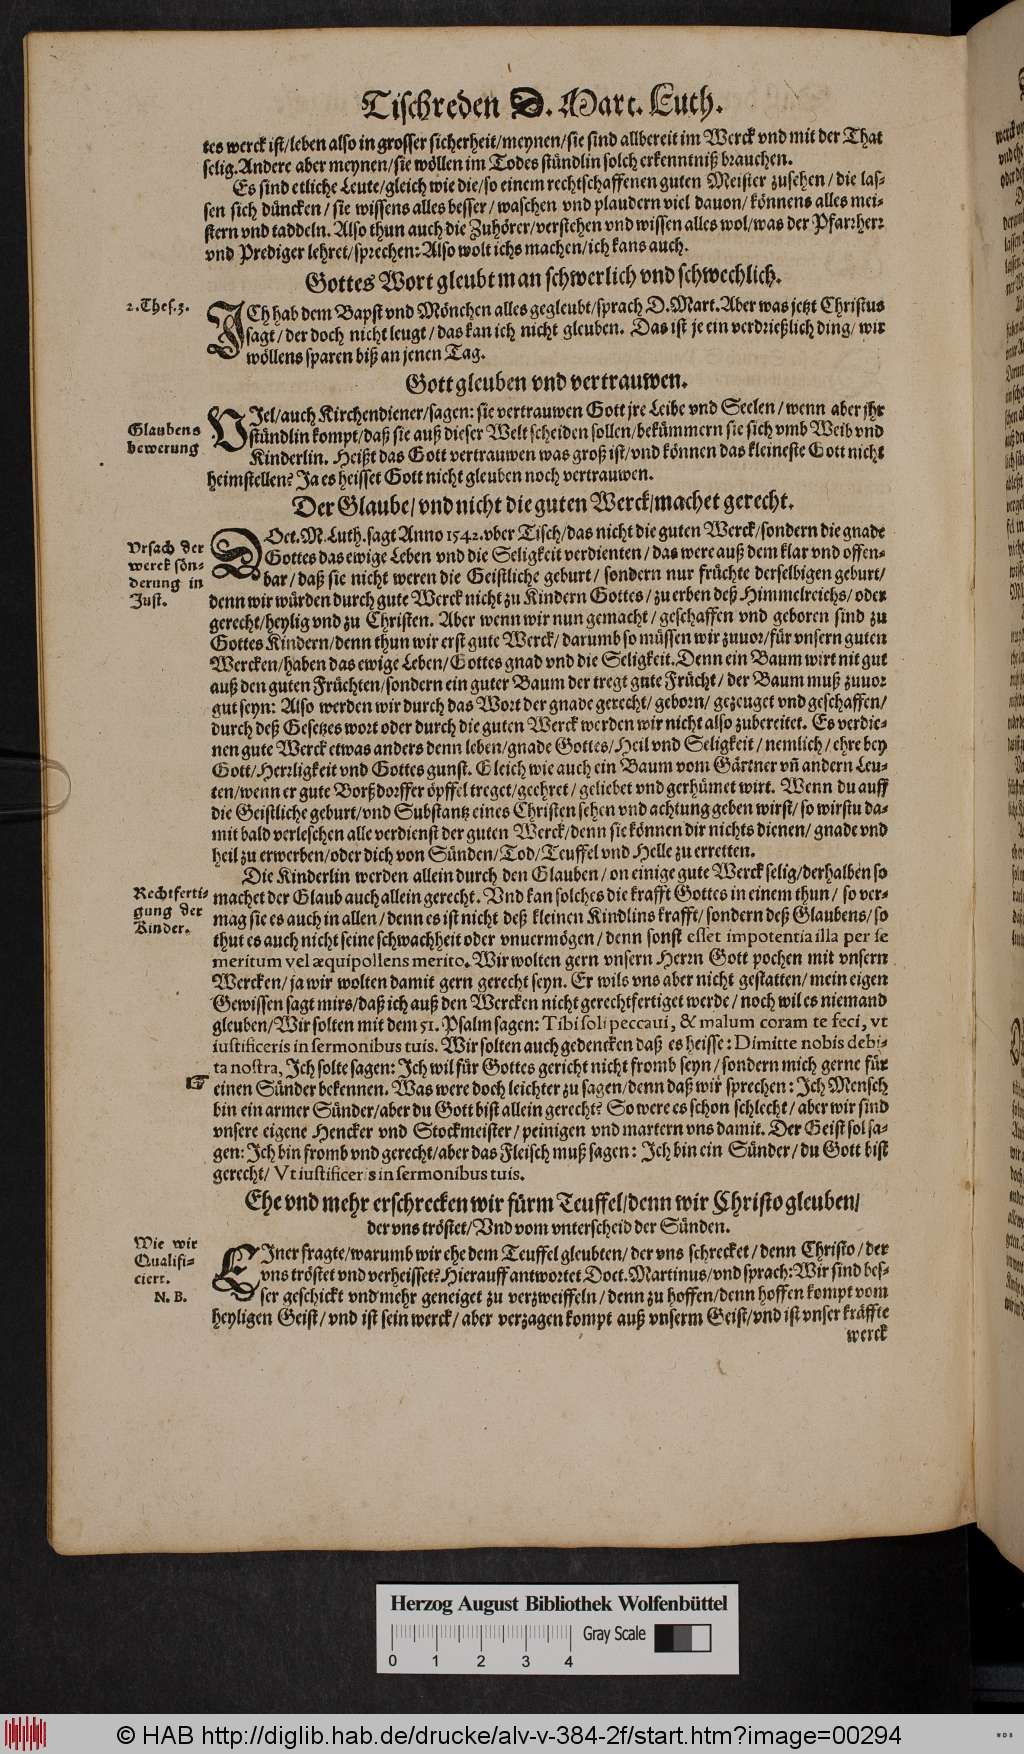 Tischreden D. Mart. Luth.
tes werck ist/leben also in grosser sicherheit/meynen/sie sind allbereit im Werck vnd mit der That
selig. Andere aber meynen/sie wöllen im Todes stündlin solch erkenntniß brauchen.
Es sind etliche Leute/gleich wie die/so einem rechtschaffenen guten Meister zusehen/die las-
sen sich düncken/sie wissens alles besser/waschen vnd plaudern viel dauon/könnens alles mei-
stern vnd taddeln. Also thun auch die Zuhörer/verstehen vnd wissen alles wol/was der Pfarrherr
vnd Prediger lehret/sprechen: Also wolt ichs machen/ich kans auch.
Gottes Wort gleubt man schwerlich vnd schwechlich.
2. Thes. 3.
ICh hab dem Bapst vnd Mönchen alles gegleubt/sprach D. Mart. Aber was jetzt Christus
sagt/der doch nicht leugt/das kan ich nicht gleuben. Das ist je ein verdrießlich ding/wir
wöllens sparen biß an jenen Tag.
Gott gleuben vnd vertrauwen.
Glaubens
bewerung
VJel/auch Kirchendiener/sagen: sie vertrauwen Gott jre Leibe vnd Seelen/wenn aber jhr
stündlin kompt/daß sie auß dieser Welt scheiden sollen/bekümmern sie sich vmb Weib vnd
Kinderlin. Heißt das Gott vertrauwen was groß ist/vnd können das kleineste Gott nicht
heimstellen? Ja es heisset Gott nicht gleuben noch vertrauwen.
Der Glaube/vnd nicht die guten Werck/machet gerecht.
Vrsach der
werck sön-
derung in
Just.
DOct. M. Luth. sagt Anno 1542. vber Tisch/das nicht die guten Werck/sondern die gnade
Gottes das ewige Leben vnd die Seligkeit verdienten/das were auß dem klar vnd offen-
bar/daß sie nicht weren die Geistliche geburt/sondern nur früchte derselbigen geburt/
denn wir würden durch gute Werck nicht zu Kindern Gottes/zu erben deß Himmelreichs/oder
gerecht/heylig vnd zu Christen. Aber wenn wir nun gemacht/geschaffen vnd geboren sind zu
Gottes Kindern/denn thun wir erst gute Werck/darumb so müssen wir zuuor/für vnsern guten
Wercken/haben das ewige Leben/Gottes gnad vnd die Seligkeit. Denn ein Baum wirt nit gut
auß den guten Früchten/sondern ein guter Baum der tregt gute Frücht/der Baum muß zuuor
gut seyn: Also werden wir durch das Wort der gnade gerecht/geborn/gezeuget vnd geschaffen/
durch deß Gesetzes wort oder durch die guten Werck werden wir nicht also zubereitet. Es verdie-
nen gute Werck etwas anders denn leben/gnade Gottes/Heil vnd Seligkeit/nemlich/ehre bey
Gott/Herrligkeit vnd Gottes gunst. Gleich wie auch ein Baum vom Gärtner vñ andern Leu-
ten/wenn er gute Borßdorffer öpffel treget/geehret/geliebet vnd gerhümet wirt. Wenn du auff
die Geistliche geburt/vnd Substantz eines Christen sehen vnd achtung geben wirst/so wirstu da-
mit bald verleschen alle verdienst der guten Werck/denn sie können dir nichts dienen/gnade vnd
heil zu erwerben/oder dich von Sünden/Tod/Teuffel vnd Helle zu erretten.
Rechtferti-
gung der
Kinder.
Die Kinderlin werden allein durch den Glauben/on einige gute Werck selig/derhalben so
machet der Glaub auch allein gerecht. Vnd kan solches die krafft Gottes in einem thun/so ver-
mag sie es auch in allen/denn es ist nicht deß kleinen Kindlins krafft/sondern deß Glaubens/so
thut es auch nicht seine schwachheit oder vnuermögen/denn sonst esset impotentia illa per se
meritum vel æquipollens merito. Wir wolten gern vnsern Herrn Gott pochen mit vnsern
Wercken/ja wir wolten damit gern gerecht seyn. Er wils vns aber nicht gestatten/mein eigen
Gewissen sagt mirs/daß ich auß den Wercken nicht gerechtfertiget werde/noch wil es niemand
gleuben/Wir solten mit dem 51. Psalm sagen: Tibi soli peccaui, & malum coram te feci, vt
iustificeris in sermonibus tuis. Wir solten auch gedencken daß es heisse: Dimitte nobis debi-
ta nostra, Ich solte sagen: Ich wil für Gottes gericht nicht fromb seyn/sondern mich gerne für
einen Sünder bekennen. Was were doch leichter zu sagen/denn daß wir sprechen: Ich Mensch
bin ein armer Sünder/aber du Gott bist allein gerecht? So were es schon schlecht/aber wir sind
vnsere eigene Hencker vnd Stockmeister/peinigen vnd martern vns damit. Der Geist sol sa-
gen: Ich bin fromb vnd gerecht/aber das Fleisch muß sagen: Ich bin ein Sünder/du Gott bist
gerecht/Vt iustificeris in sermonibus tuis.
Ehe vnd mehr erschrecken wir fürm Teuffel/denn wir Christo gleuben/
der vns tröstet/Vnd vom vnterscheid der Sünden.
Wie wir
Qualifi-
ciert.
N. B.
EIner fragte/warumb wir ehe dem Teuffel gleubten/der vns schrecket/denn Christo/der
vns tröstet vnd verheisset? Hierauff antwortet Doct. Martinus/vnd sprach: Wir sind bes-
ser geschickt vnd mehr geneiget zu verzweiffeln/denn zu hoffen/denn hoffen kompt vom
heyligen Geist/vnd ist sein werck/aber verzagen kompt auß vnserm Geist/vnd ist vnser kräffte
werck
Herzog August Bibliothek Wolfenbüttel
Gray Scale
0 1 2 3 4
© HAB http://diglib.hab.de/drucke/alv-v-384-2f/start.htm?image=00294